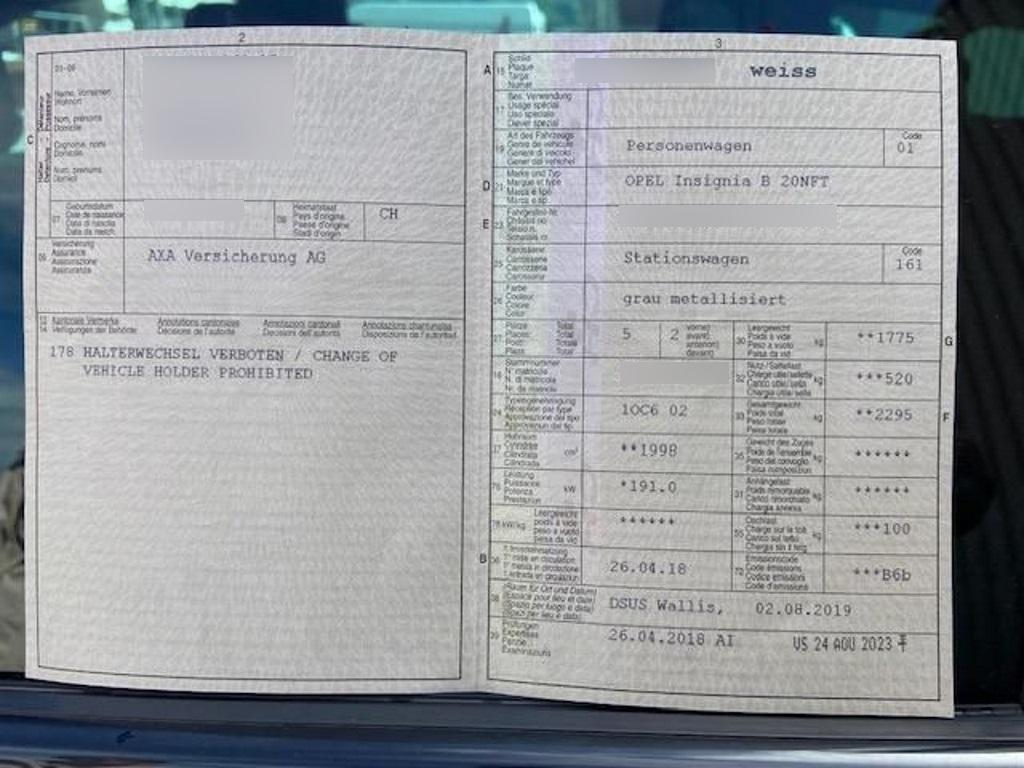 2
01-06
Name, Vornamen
Wohnort
Nom, prénoms
Domicile
Cognome, nomi
Domicilio
Num, prenums
Domicil
C
07
Geburtsdatum
Date de naissance
Data di nascita
Data da nasch.
08
Heimatstaat
Pays d'origine
Paese d'origine
Stadi d'origin
CH
09
Versicherung
Assurance
Assicurazione
Assicuranza
AXA Versicherung AG
13
14
Kantonale Vermerke
Verfügungen der Behörde
Annotations cantonales
Décisions de l'autorité
Annotazioni cantonali
Decisioni dell'autorità
Annotaziuns chantunalas
Disposiziuns da l'autoritad
178 HALTERWECHSEL VERBOTEN / CHANGE OF
VEHICLE HOLDER PROHIBITED
3
A
15
Schild
Plaque
Targa
Numer
weiss
17
Bes. Verwendung
Usage spécial
Uso speciale
Diever spezial
19
Art des Fahrzeugs
Genre de véhicule
Genere di veicolo
Gener dal vehichel
Personenwagen
Code
01
D
21
Marke und Typ
Marque et type
Marca e tipo
Marca e tip
OPEL Insignia B 20NFT
E
23
Fahrgestell-Nr.
Châssis no
Telaio n.
Schassis nr.
25
Karosserie
Carrosserie
Carrozzeria
Carossaria
Stationswagen
Code
161
26
Farbe
Couleur
Colore
Colur
grau metallisiert
27
Plätze Total
Places Total
Posti Totale
Plazs Total
5
2
vorne)
avant)
anteriori)
davant)
30
Leergewicht
Poids à vide
Peso a vuoto
Paisa da vid
kg
**1775
G
18
Stammnummer
N° matricule
N. di matricola
Nr. da matricla
32
Nutz-/Sattellast
Charge utile/sellette
Carico utile/sella
Chargia utila/sella
kg
***520
24
Typengenehmigung
Réception par type
Approvazione del tipo
Approvaziun dal tip
1OC6 02
33
Gesamtgewicht
Poids total
Peso totale
Paisa totala
kg
**2295
F
37
Hubraum
Cylindrée
Cilindrata
Cilindrada
cm³
**1998
35
Gewicht des Zuges
Poids de l'ensemble
Peso del convoglio
Paisa cumposiziun
kg
******
76
Leistung
Puissance
Potenza
Prestaziun
kW
*191.0
31
Anhängelast
Poids remorquable
Carico rimorchiato
Chargia annexa
kg
******
78
kW/kg
Leergewicht
poids à vide
peso a vuoto
paisa da vid
******
55
Dachlast
Charge sur le toit
Carico sul tetto
Chargia sin il tetg
kg
***100
B
36
1. Inverkehrsetzung
1re mise en circulation
1a messa in circolazione
1. entrada en circulaziun
26.04.18
72
Emissionscode
Code émissions
Codice emissioni
Code d'emissiuns
***B6b
38
(Raum für Ort und Datum)
(Espace pour lieu et date)
(Spazio per luogo e data)
(Spazi per lieu e data)
DSUS Wallis, 02.08.2019
39
Prüfungen
Expertises
Perizie
Examinaziuns
26.04.2018 AI
VS 24 AOU 2023